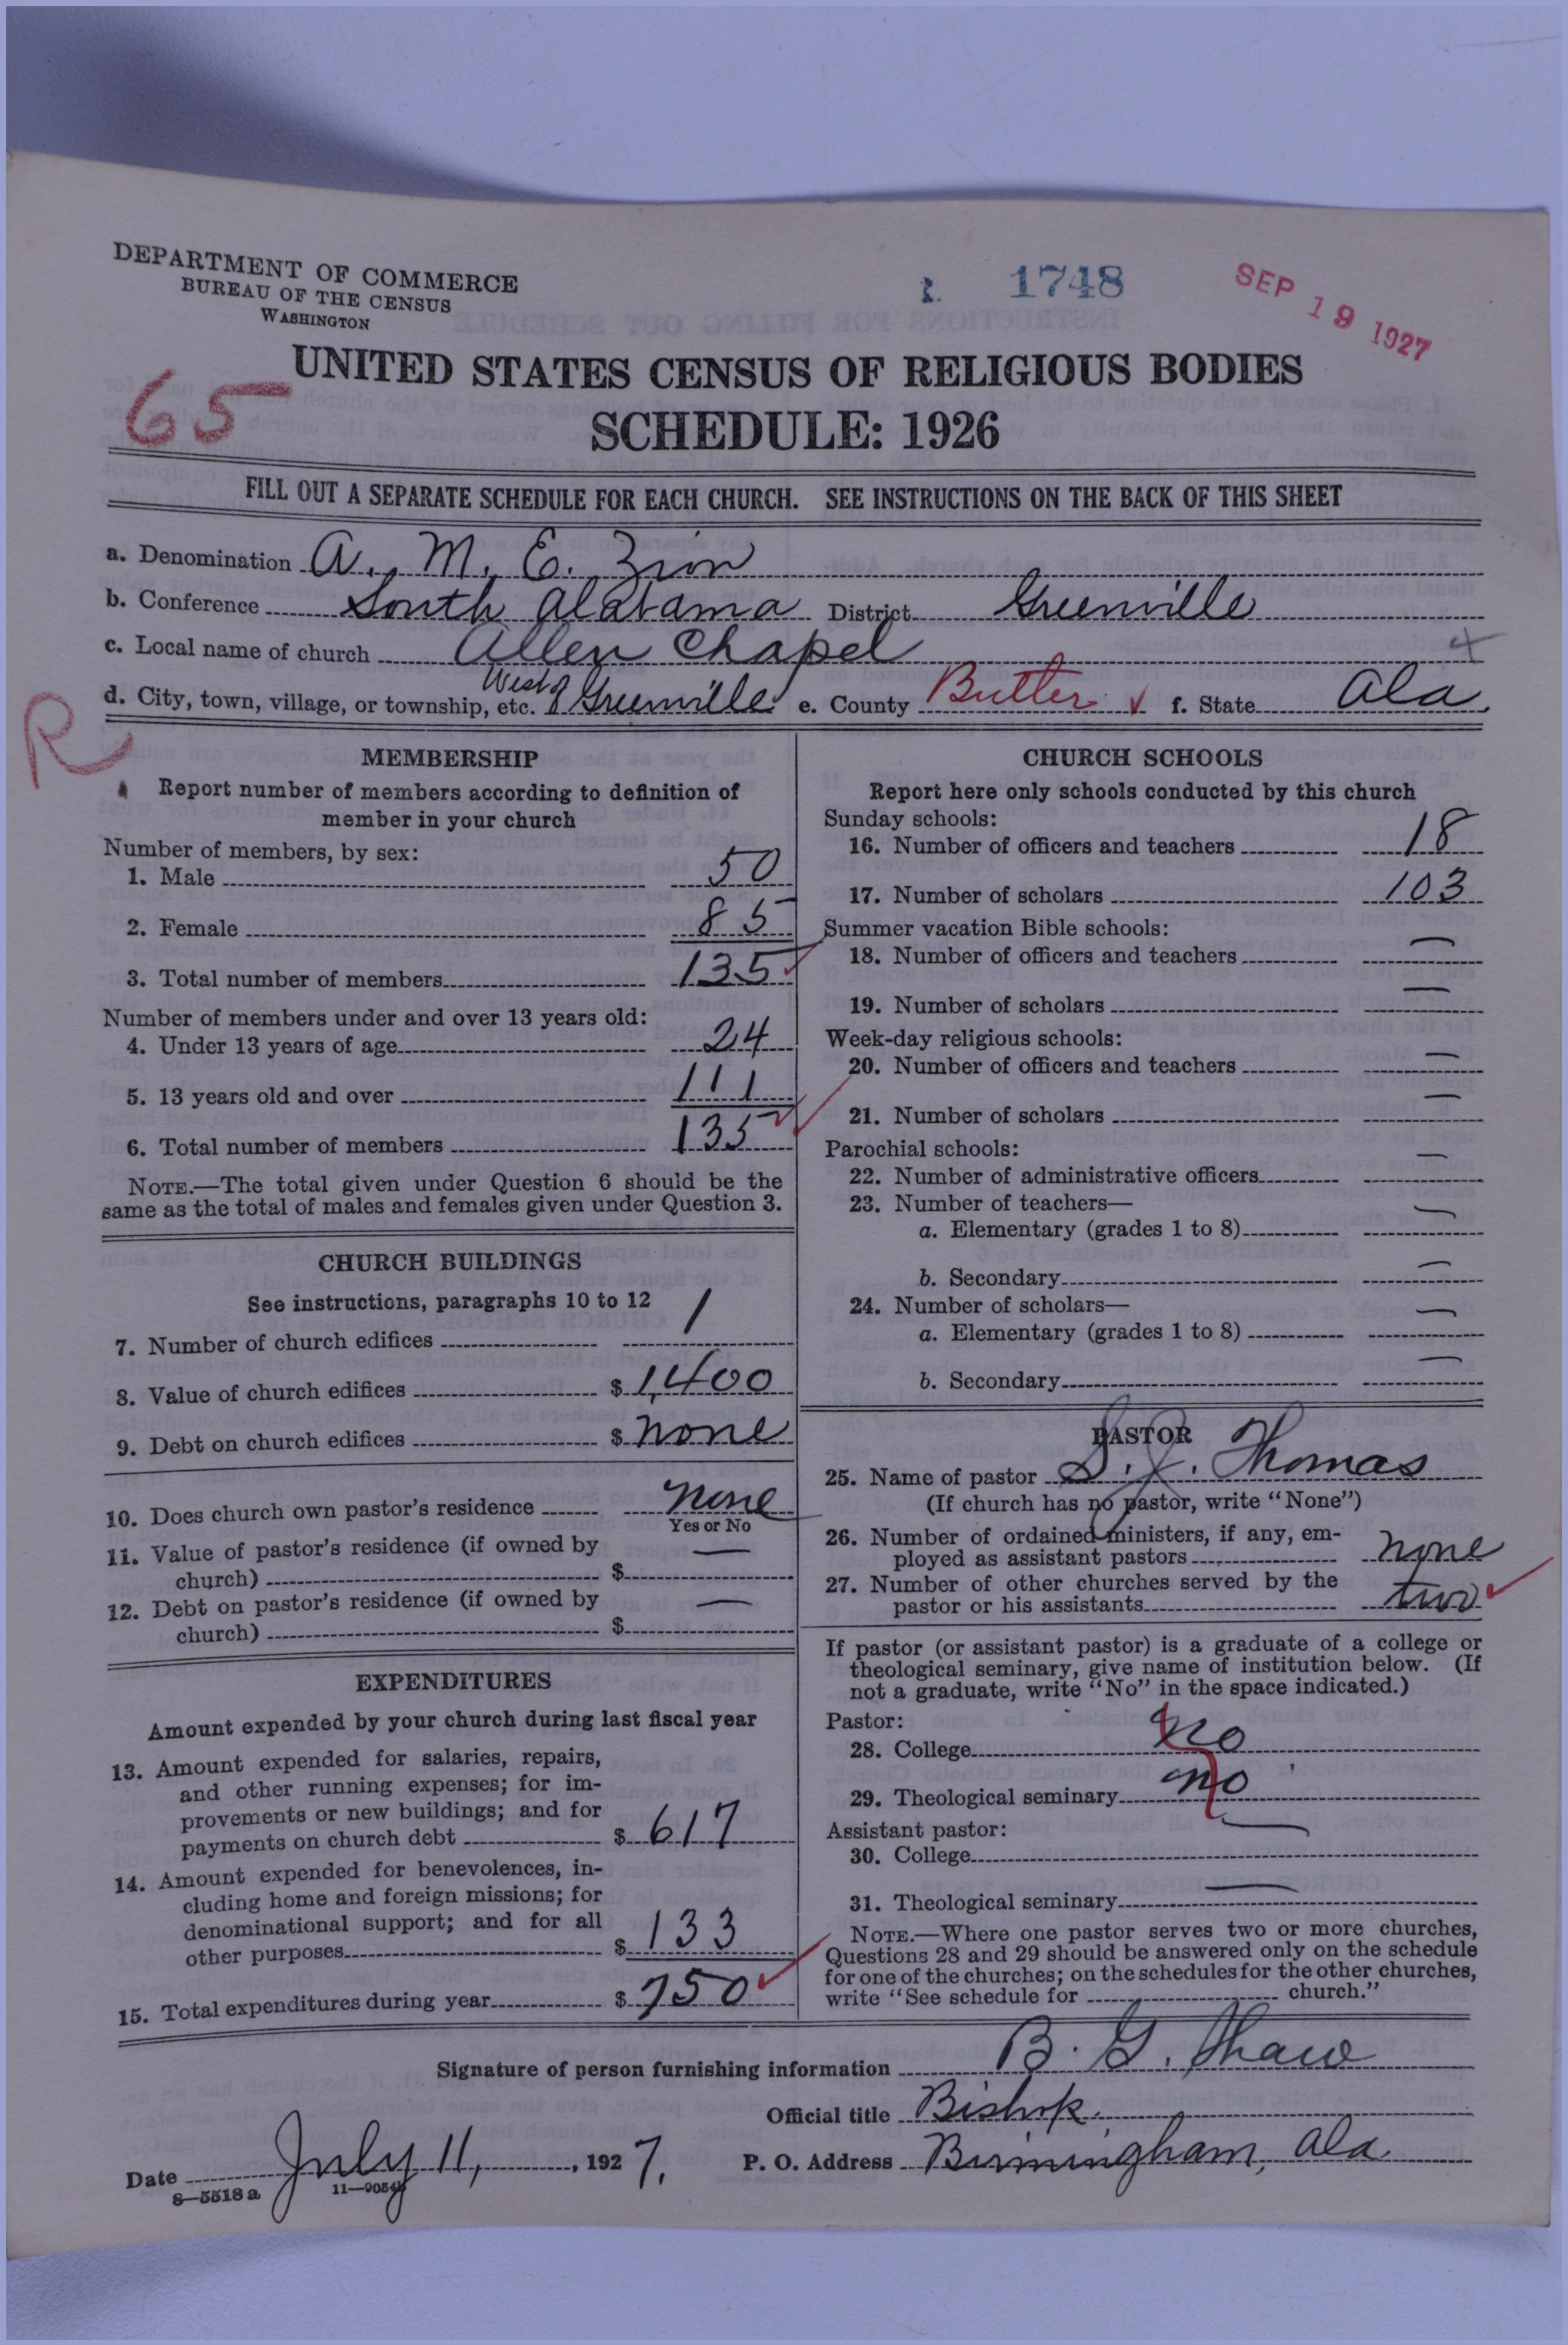 DEPARTMENT OF COMMERCE
BUREAU OF THE CENSUS
WASHINGTON
1748
SEP 19 1927
65
UNITED STATES CENSUS OF RELIGIOUS BODIES
SCHEDULE: 1926
FILL OUT A SEPARATE SCHEDULE FOR EACH CHURCH. SEE INSTRUCTIONS ON THE BACK OF THIS SHEET
a. Denomination A. M. E. Zion
b. Conference South Alabama District Greenville
c. Local name of church Allen Chapel 4
d. City, town, village, or township, etc. West of Greenville e. County Butler f. State Ala.
R
MEMBERSHIP
Report number of members according to definition of
member in your church
Number of members, by sex:
1. Male 50
2. Female 85
3. Total number of members 135
Number of members under and over 13 years old:
4. Under 13 years of age 24
5. 13 years old and over 111
6. Total number of members 135
NOTE.—The total given under Question 6 should be the
same as the total of males and females given under Question 3.
CHURCH BUILDINGS
See instructions, paragraphs 10 to 12
7. Number of church edifices 1
8. Value of church edifices $ 1,400
9. Debt on church edifices $ none
10. Does church own pastor's residence none
Yes or No
11. Value of pastor's residence (if owned by
church) $ —
12. Debt on pastor's residence (if owned by
church) $ —
EXPENDITURES
Amount expended by your church during last fiscal year
13. Amount expended for salaries, repairs,
and other running expenses; for im-
provements or new buildings; and for
payments on church debt $ 617
14. Amount expended for benevolences, in-
cluding home and foreign missions; for
denominational support; and for all
other purposes $ 133
15. Total expenditures during year $ 750
CHURCH SCHOOLS
Report here only schools conducted by this church
Sunday schools:
16. Number of officers and teachers 18
17. Number of scholars 103
Summer vacation Bible schools:
18. Number of officers and teachers —
19. Number of scholars —
Week-day religious schools:
20. Number of officers and teachers —
21. Number of scholars —
Parochial schools:
22. Number of administrative officers —
23. Number of teachers—
a. Elementary (grades 1 to 8) —
b. Secondary —
24. Number of scholars—
a. Elementary (grades 1 to 8) —
b. Secondary —
PASTOR
25. Name of pastor S. J. Thomas
(If church has no pastor, write "None")
26. Number of ordained ministers, if any, em-
ployed as assistant pastors none
27. Number of other churches served by the
pastor or his assistants two
If pastor (or assistant pastor) is a graduate of a college or
theological seminary, give name of institution below. (If
not a graduate, write "No" in the space indicated.)
Pastor:
28. College no
29. Theological seminary no
Assistant pastor:
30. College —
31. Theological seminary —
NOTE.—Where one pastor serves two or more churches,
Questions 28 and 29 should be answered only on the schedule
for one of the churches; on the schedules for the other churches,
write "See schedule for church."
Signature of person furnishing information B. G. Shaw
Official title Bishop.
Date July 11, 1927. P. O. Address Birmingham, Ala.
8—5518 a 11—9054